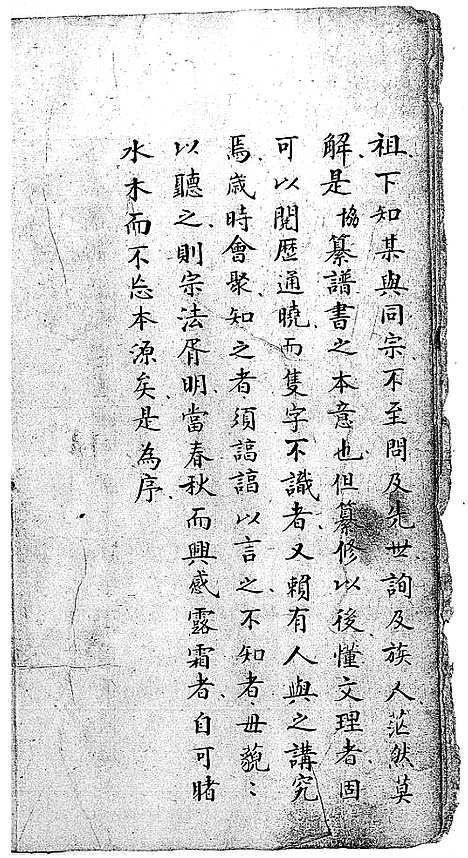 祖下知某與同宗不至問及先世詢及族人茫然莫
解是協纂譜書之本意也但纂修以後懂文理者固
可以閱歷通曉而隻字不識者又賴有人與之講究
焉歲時會聚知之者須諄諄以言之不知者毋藐〻
以聽之則宗法胥明當春秋而興感露霜者自可睹
水木而不忘本源矣是為序